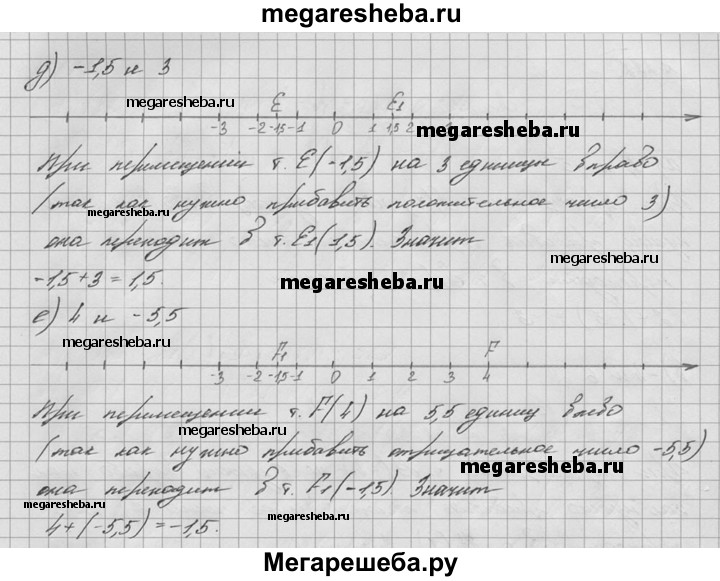 megaresheba.ru
д) -1,5 и 3
megaresheba.ru
megaresheba.ru
E E1
-3 -2 -1,5 -1 0 1 1,5 2
megaresheba.ru
При перемещении т. E(-1,5) на 3 единицы вправо
(так как нужно прибавить положительное число 3)
megaresheba.ru
она переходит в т. E1(1,5). Значит
-1,5+3=1,5.
megaresheba.ru
е) 4 и -5,5
megaresheba.ru
F1 F
-3 -2 -1,5 -1 0 1 2 3 4
При перемещении т. F(4) на 5,5 единиц влево
megaresheba.ru
(так как нужно прибавить отрицательное число -5,5)
megaresheba.ru
она переходит в т. F1(-1,5). Значит
megaresheba.ru
4+(-5,5)=-1,5.
megaresheba.ru
Мегарешеба.ру